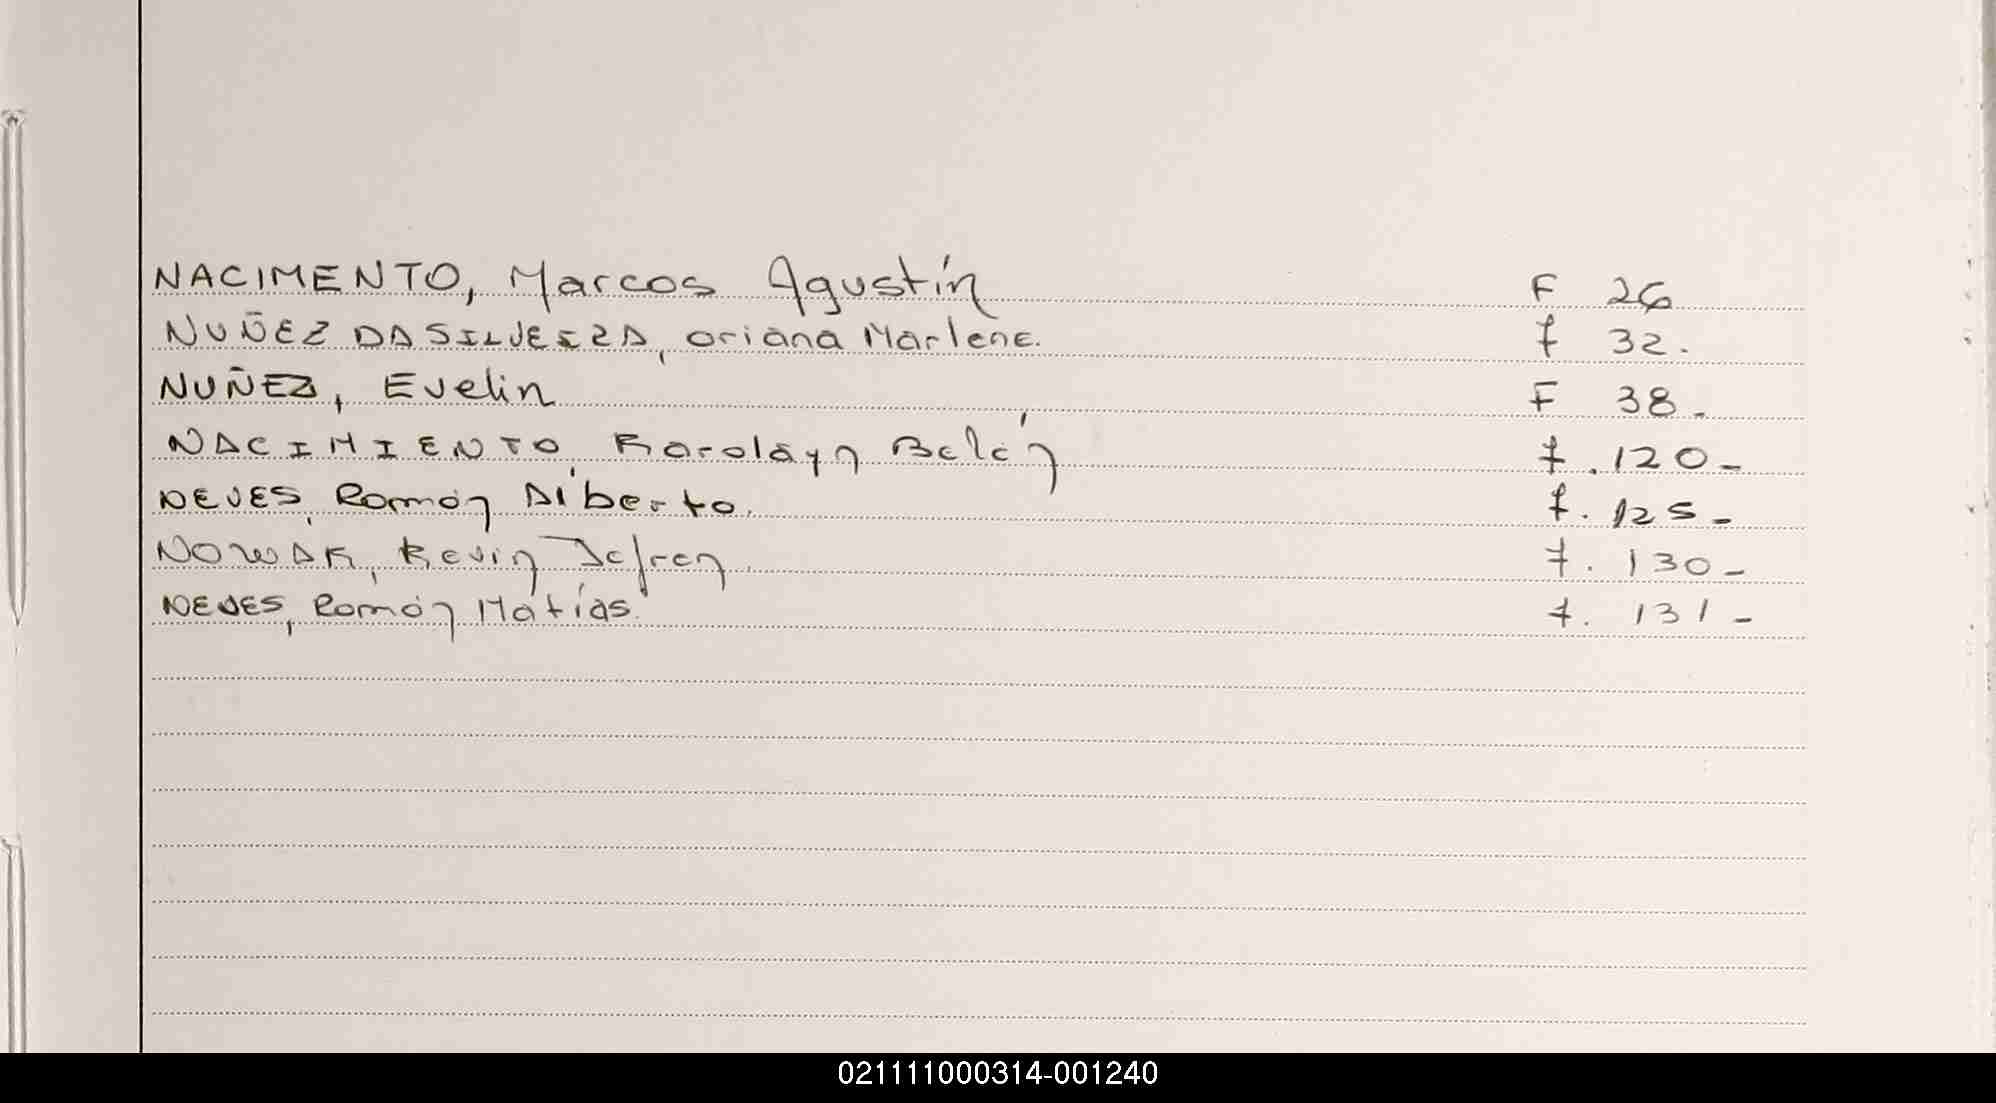 NACIMENTO, Marcos Agustín F 26
NUÑEZ DASILVEIRA, Oriana Marlene. f 32.
NUÑEZ, Evelin F 38.
NACIMIENTO, Karolayn Belén f. 120-
NEVES, Román Alberto. f. 125-
NOWAK, Kevin Jefren. f. 130-
NEVES, Román Matías. f. 131-
021111000314-001240